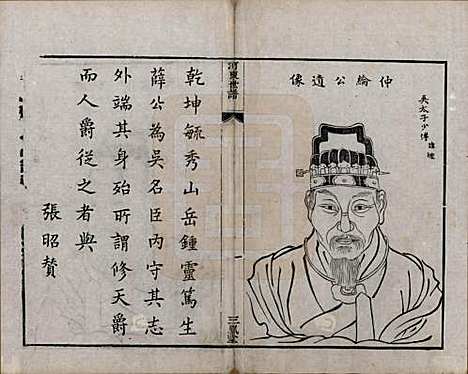 像遺公綸仲
吳太子少傅
諱瑩
河東世譜
一
三鳳堂
乾坤毓秀山岳鍾靈篤生
薛公為吳名臣內守其志
外端其身殆所謂修天爵
而人爵從之者與
張昭贊